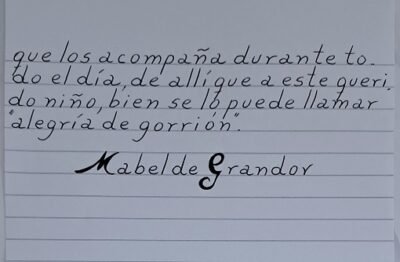 que los acompaña durante to.
do el día, de allí que a este queri.
do niño, bien se lo puede llamar
"alegría de gorrión".
Mabel de Grandor